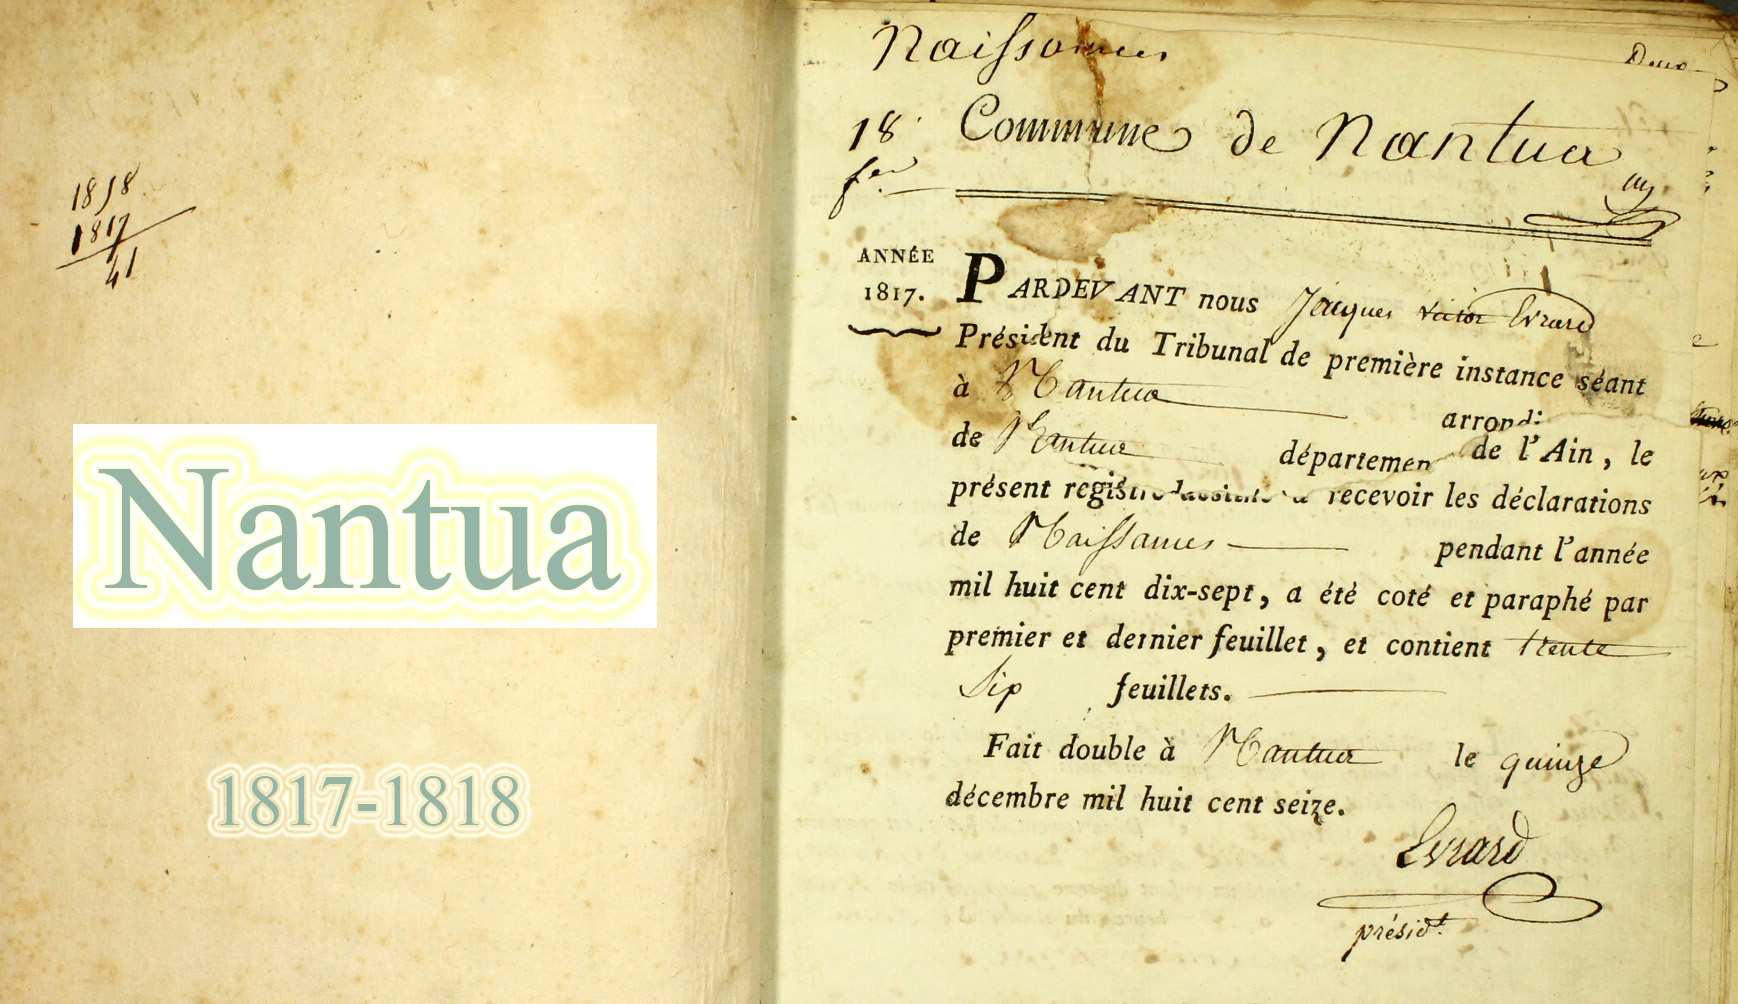 1818
1817
41
Nantua
1817-1818
Naissances
18.
Commune de Nantua
ANNÉE
1817.
PARDEVANT nous Jacques Victor Evrard
Président du Tribunal de première instance séant
à Nantua
de Nantua département de l'Ain, le
présent registre recevoir les déclarations
de Naissances pendant l'année
mil huit cent dix-sept, a été coté et paraphé par
premier et dernier feuillet, et contient trente
six feuillets.
Fait double à Nantua le quinze
décembre mil huit cent seize.
Evrard
présidt.